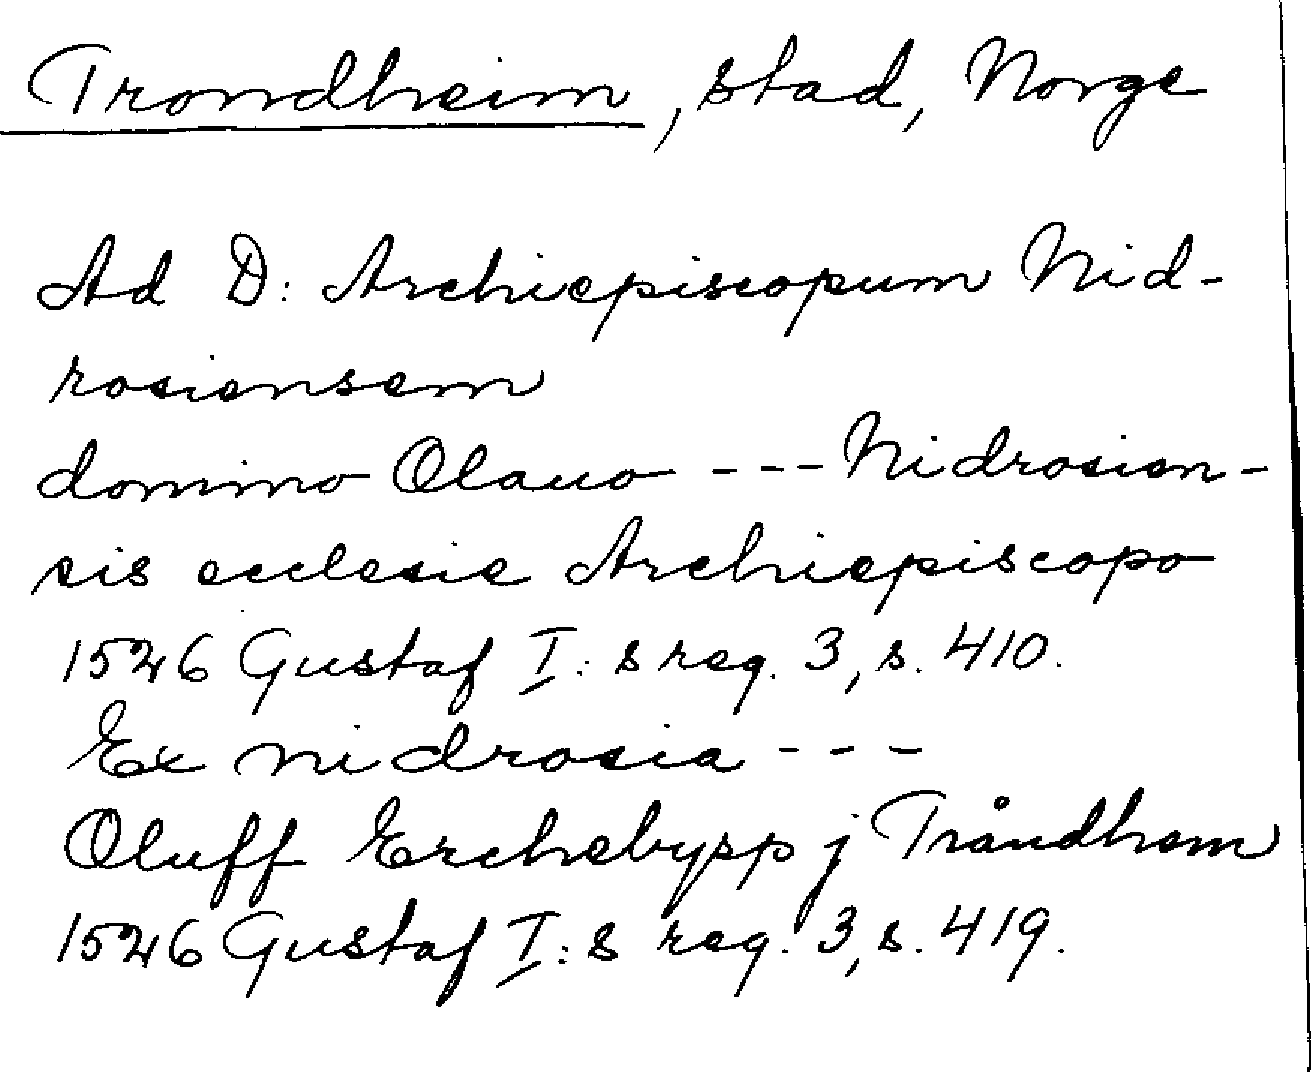 Trondheim, stad, Norge
Ad D: Archiepiscopum Nid-
rosiensem
domino Olauo --- Nidrosien-
sis ecclesie Archiepiscopo
1526 Gustaf I:s reg. 3, s. 410.
Ex nidrosia ---
Oluff Erchebysp j Tråndhem
1526 Gustaf I:s reg. 3, s. 419.